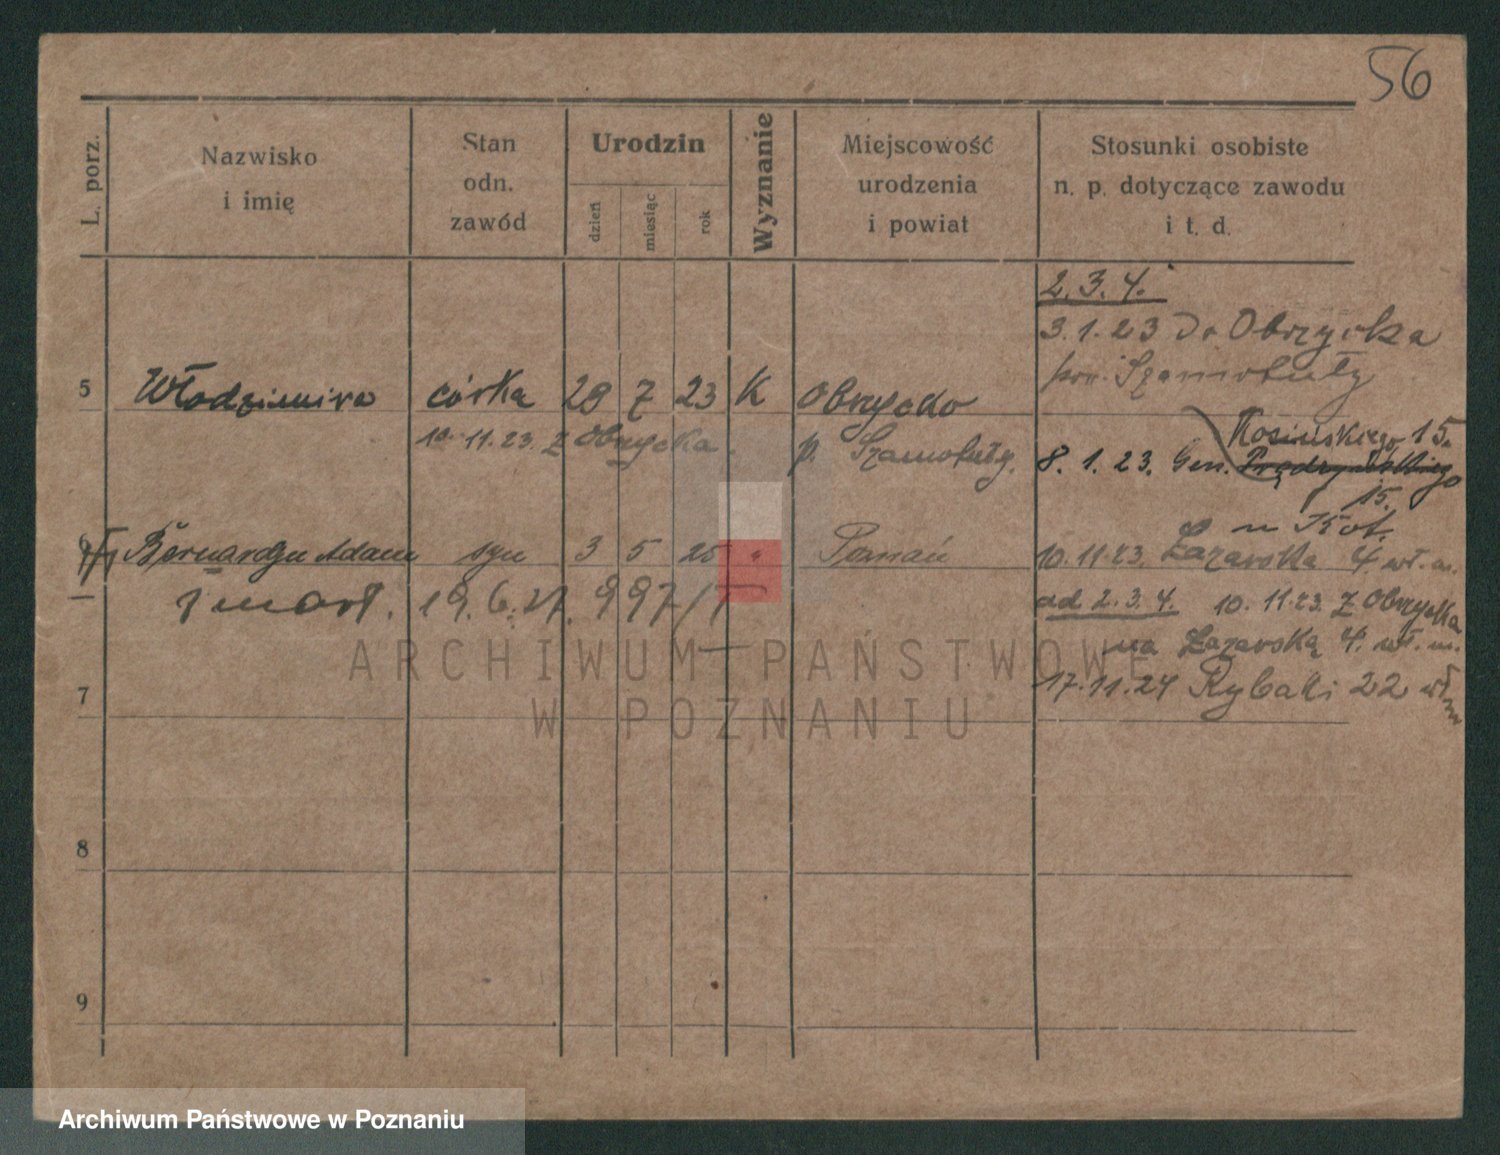 56
L. porz.
Nazwisko
i imię
Stan
odn.
zawód
Urodzin
dzień
miesiąc
rok
Wyznanie
Miejscowość
urodzenia
i powiat
Stosunki osobiste
n. p. dotyczące zawodu
i t. d.
2. 3. 4.
3. 1. 23 do Obrzycka
pow. Szamotuły
5 Włodzimira córka 29 7 23 K Obrzycko
10. 11. 23. z Obrzycka. p. Szamotuły.
Kosińskiego 15.
8. 1. 23. Gen. Prądzyńskiego
15.
u Kot.
6 Bernardyn Adam syn 3 5 25 " Poznań
10. 11. 23. Łazarska 4 wł. m.
zmarł. 19. 6. 27. 997/T
ad 2. 3. 4. 10. 11. 23. z Obrzycka
na Łazarską 4. wł. m.
17. 11. 24 Rybaki 22 wł m
7
8
9
ARCHIWUM PAŃSTWOWE
W POZNANIU
Archiwum Państwowe w Poznaniu